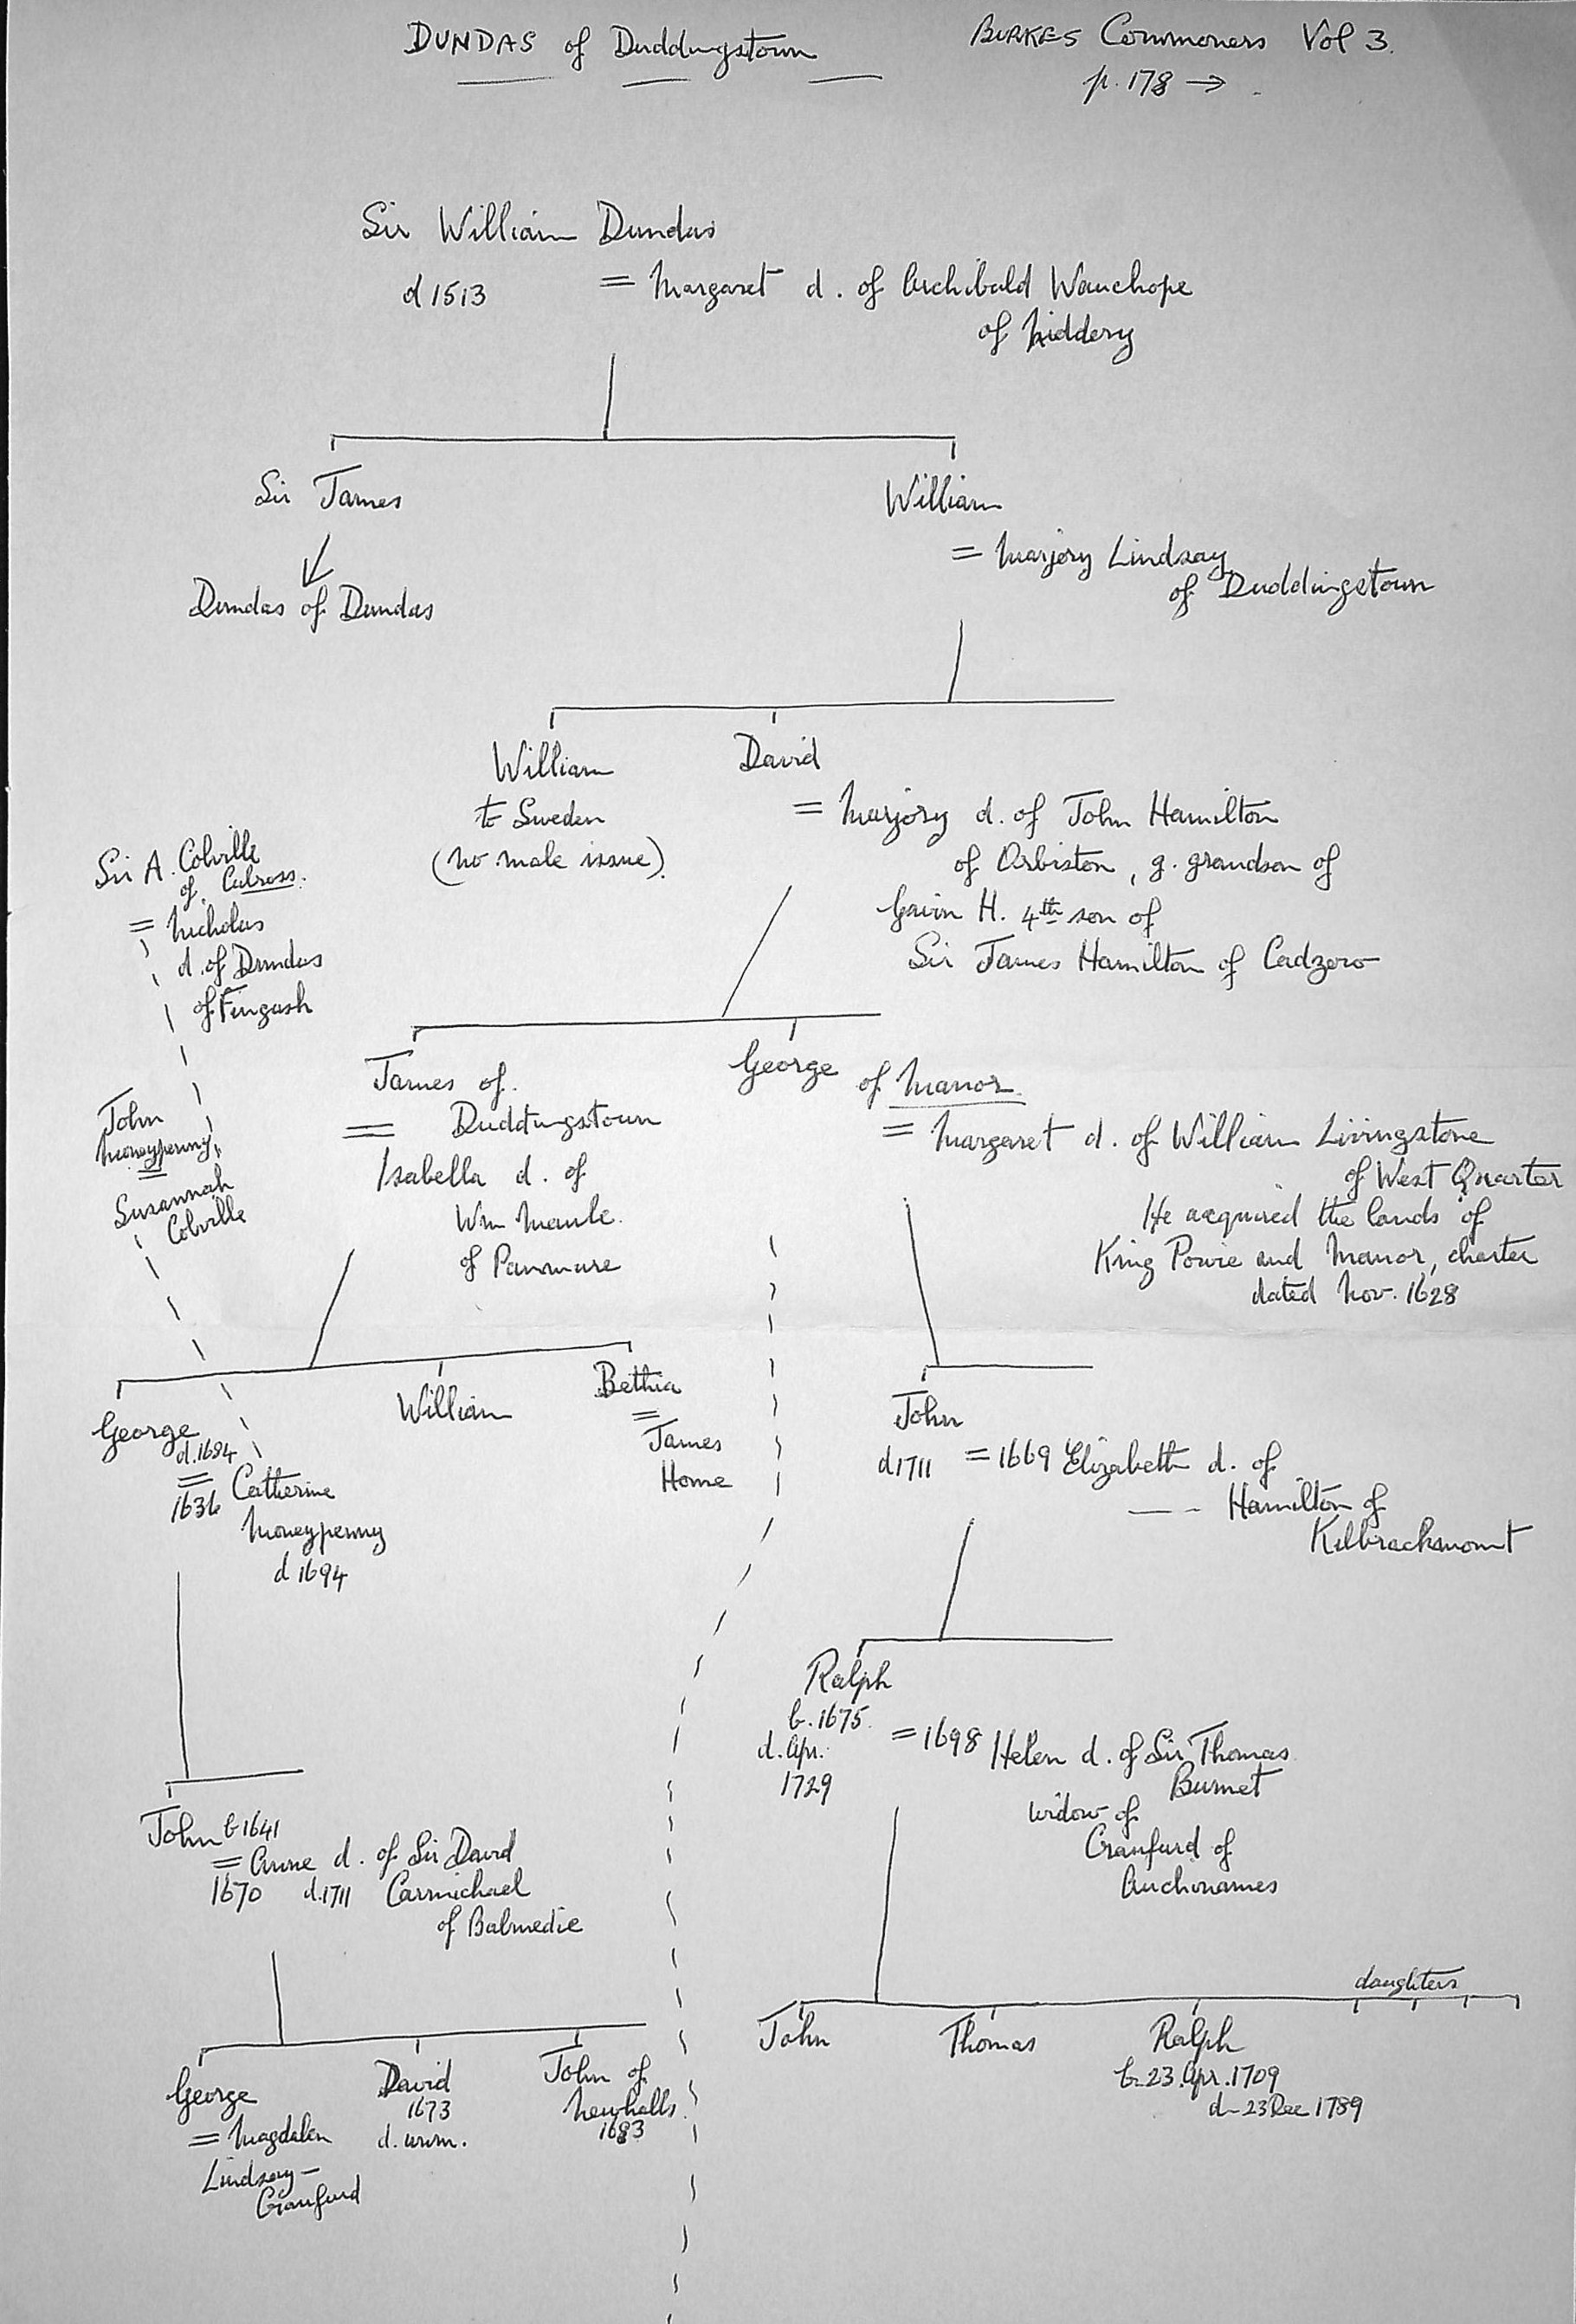 DUNDAS of Duddingstown
BURKES Commoners Vol 3.
p. 178 →
Sir William Dundas
d 1513
= Margaret d. of Archibald Wauchope
of Niddery
Sir James
William
= Marjory Lindsay
of Duddingstown
Dundas of Dundas
William
to Sweden
(no male issue).
David
= Marjory d. of John Hamilton
of Orbiston, g. grandson of
Gavin H. 4th son of
Sir James Hamilton of Cadzow
Sir A. Colville
of Culross.
= Nicholas
d. of Dundas
of Fingash
John
Moneypenny
=
Susannah
Colville
James of
Duddingstown
=
Isabella d. of
Wm Maule.
of Panmure
George of Manor.
= Margaret d. of William Livingstone
of West Quarter
He acquired the lands of
King Powie and Manor, charter
dated Nov. 1628
George
d. 1684
= Catherine
1636
Moneypenny
d 1694
William
Bethia
=
James
Home
John
d 1711 = 1669 Elizabeth d. of
—— - Hamilton of
Kilbrackmont
Ralph
b. 1675.
d. Apr.
1729
= 1698 Helen d. of Sir Thomas
Burnet
widow of
Craufurd of
Auchinames
John b 1641
= Anne d. of Sir David
1670 d. 1711 Carmichael
of Balmedie
George
= Magdalen
Lindsay-
Craufurd
David
1673
d. unm.
John of
Newhalls.
1683
John
Thomas
Ralph
b. 23. Apr. 1709
d- 23 Dec 1789
daughters